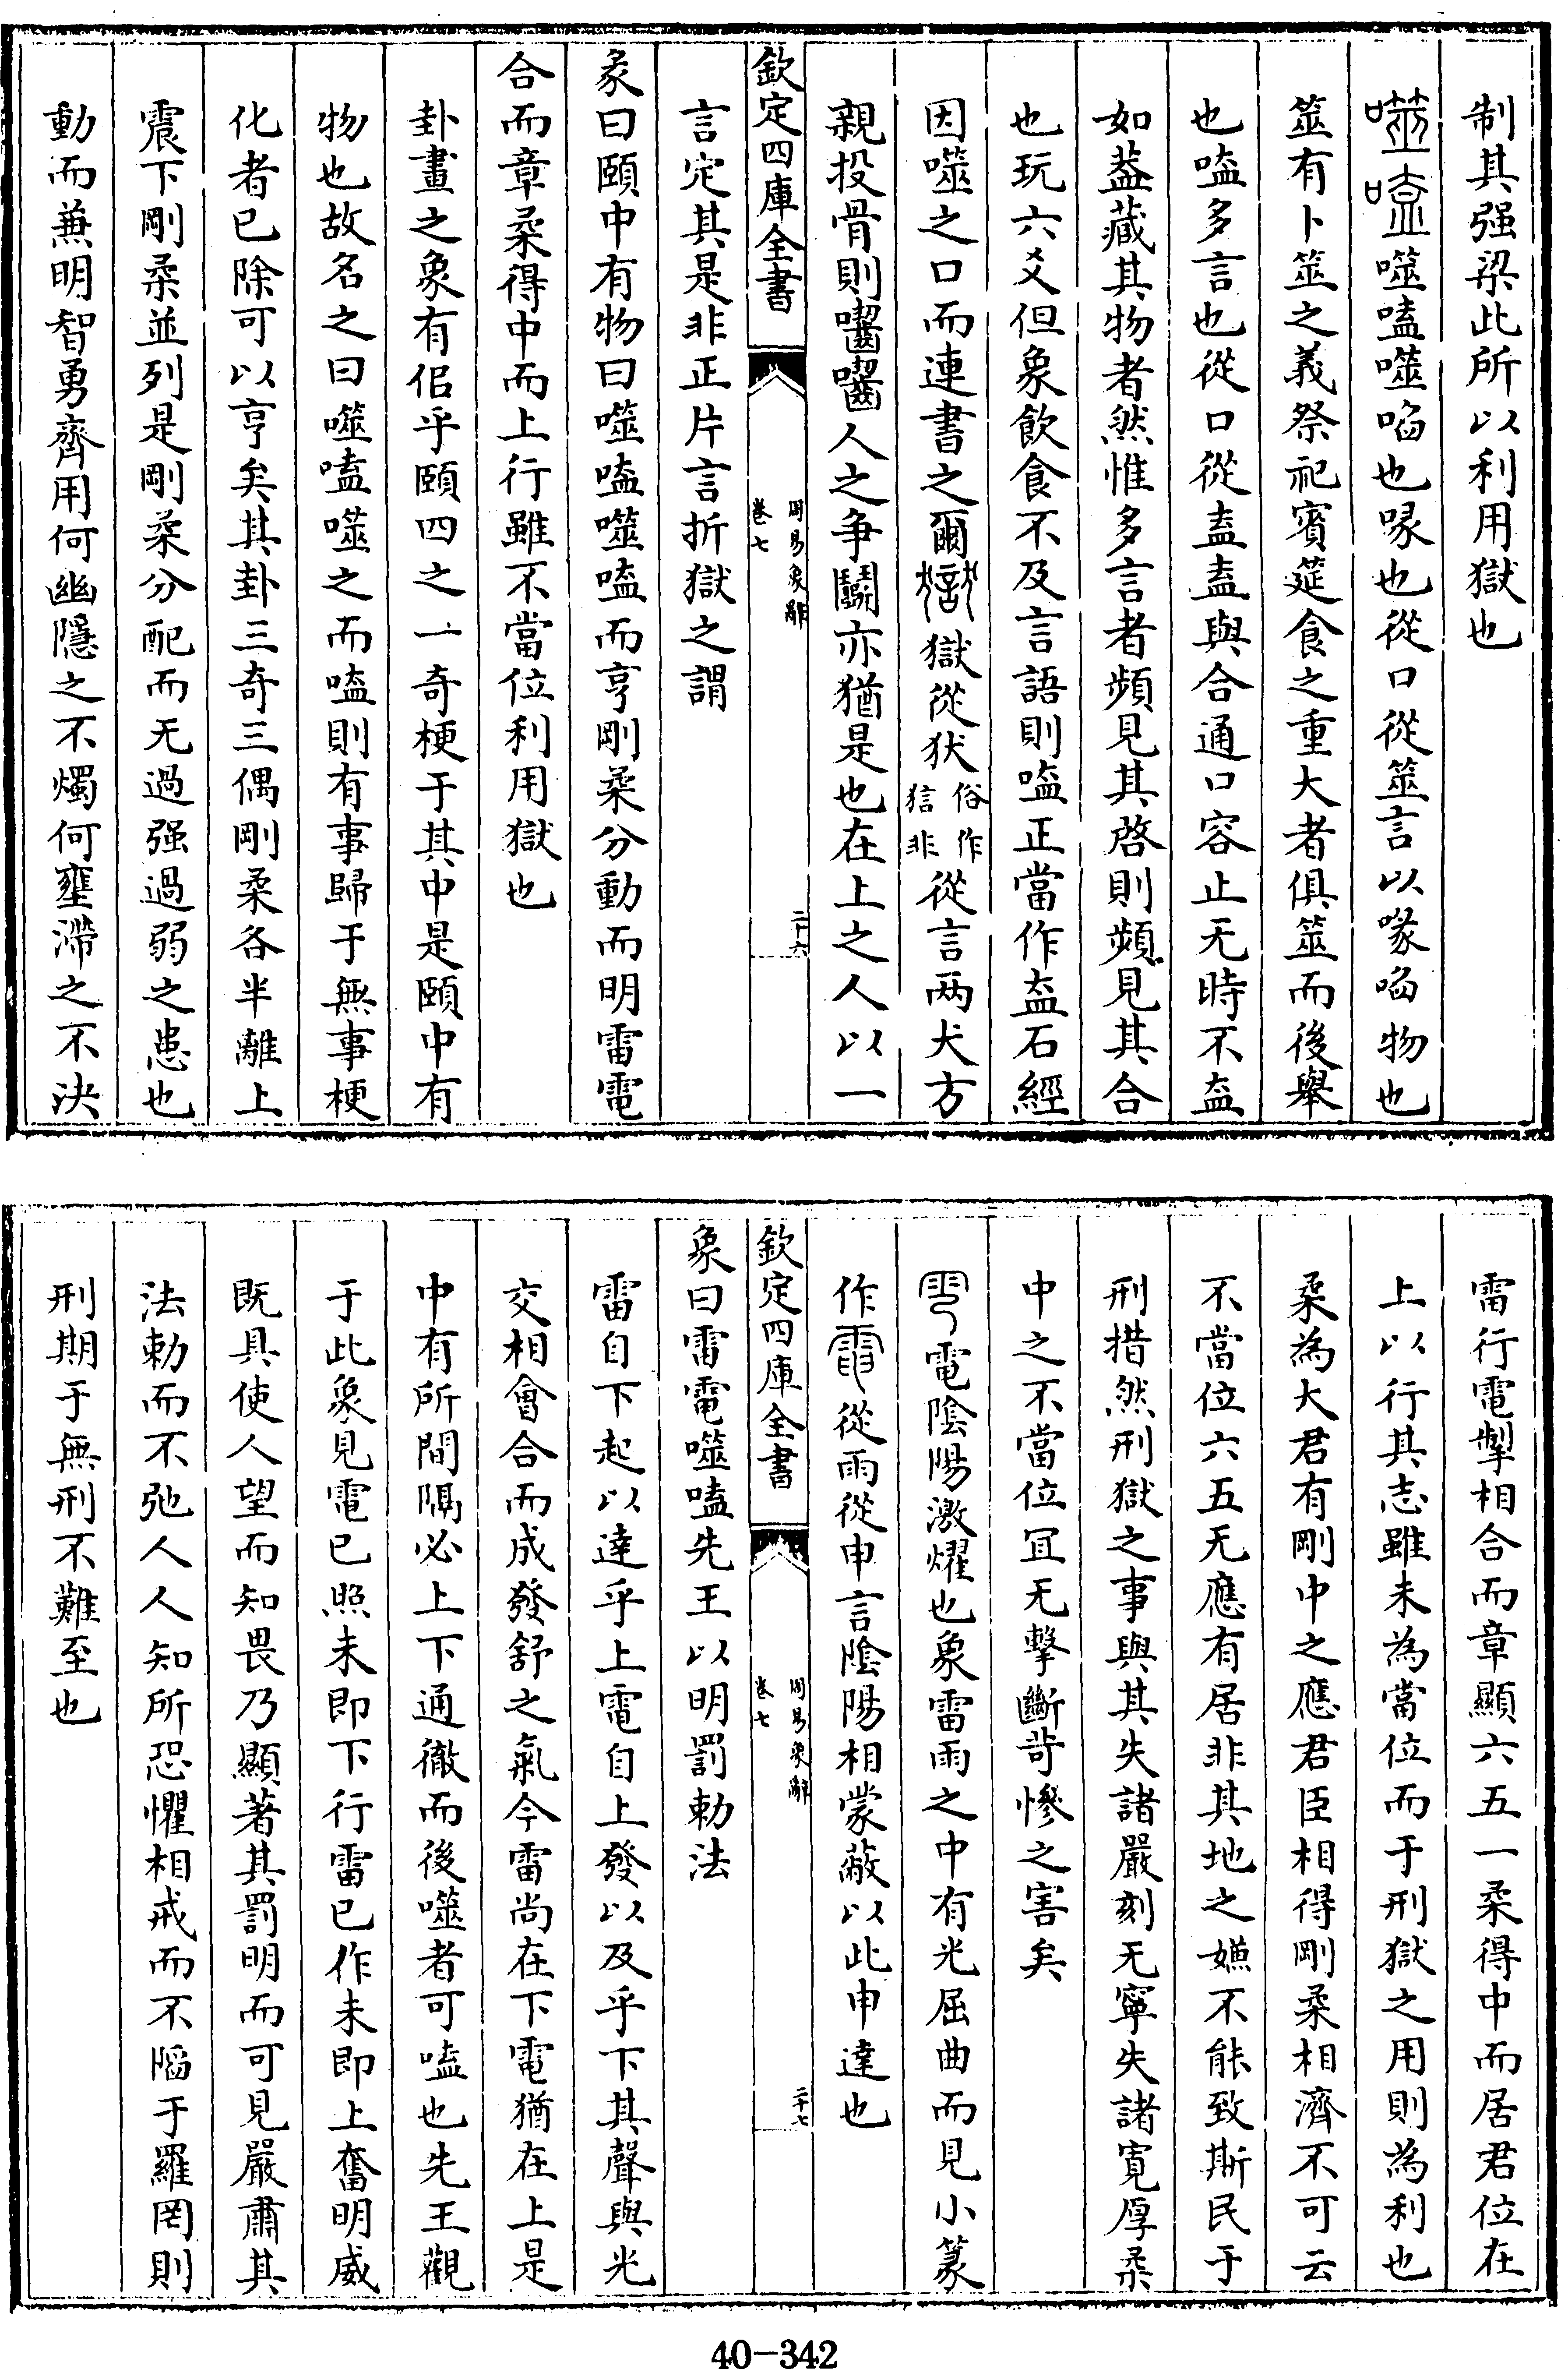 制其强梁此所以利用獄也
噬嗑噬嗑噬啗也喙也從口從筮言以喙啗物也
筮有卜筮之義祭祀賓筵食之重大者俱筮而後舉
也嗑多言也從口從盍盍與合通口容止无時不盍
如葢藏其物者然惟多言者頻見其啓則頻見其合
也玩六爻但象飲食不及言語則嗑正當作盍石經
因噬之口而連書之爾獄獄從㹜俗作㹜非從言两犬方
親投骨則囓囓人之争鬭亦猶是也在上之人以一
欽定四庫全書
周易象辭
卷七
二十六
言定其是非正片言折獄之謂
彖曰頤中有物曰噬嗑噬嗑而亨剛柔分動而明雷電
合而章柔得中而上行雖不當位利用獄也
卦畫之象有侣乎頤四之一奇梗于其中是頤中有
物也故名之曰噬嗑噬之而嗑則有事歸于無事梗
化者已除可以亨矣其卦三奇三偶剛柔各半離上
震下剛柔並列是剛柔分配而无過强過弱之患也
動而兼明智勇齊用何幽隱之不燭何壅滯之不決
雷行電掣相合而章顯六五一柔得中而居君位在
上以行其志雖未為當位而于刑獄之用則為利也
柔為大君有剛中之應君臣相得剛柔相濟不可云
不當位六五无應有居非其地之嫌不能致斯民于
刑措然刑獄之事與其失諸嚴刻无寧失諸寛厚柔
中之不當位宜无擊斷苛慘之害矣
電陰陽激燿也象雷雨之中有光屈曲而見小篆
作電從雨從申言陰陽相蒙蔽以此申達也
欽定四庫全書
周易象辭
卷七
二十七
象曰雷電噬嗑先王以明罰勅法
雷自下起以達乎上電自上發以及乎下其聲與光
交相會合而成發舒之氣今雷尚在下電猶在上是
中有所間隔必上下通徹而後噬者可嗑也先王觀
于此象見電已照未即下行雷已作未即上奮明威
既具使人望而知畏乃顯著其罰明而可見嚴肅其
法勅而不弛人人知所恐懼相戒而不陷于羅罔則
刑期于無刑不難至也
40-342